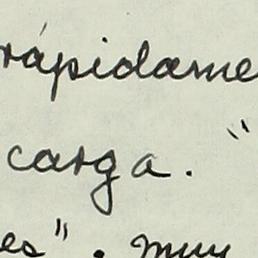 rápidame
carga. "
es". muy